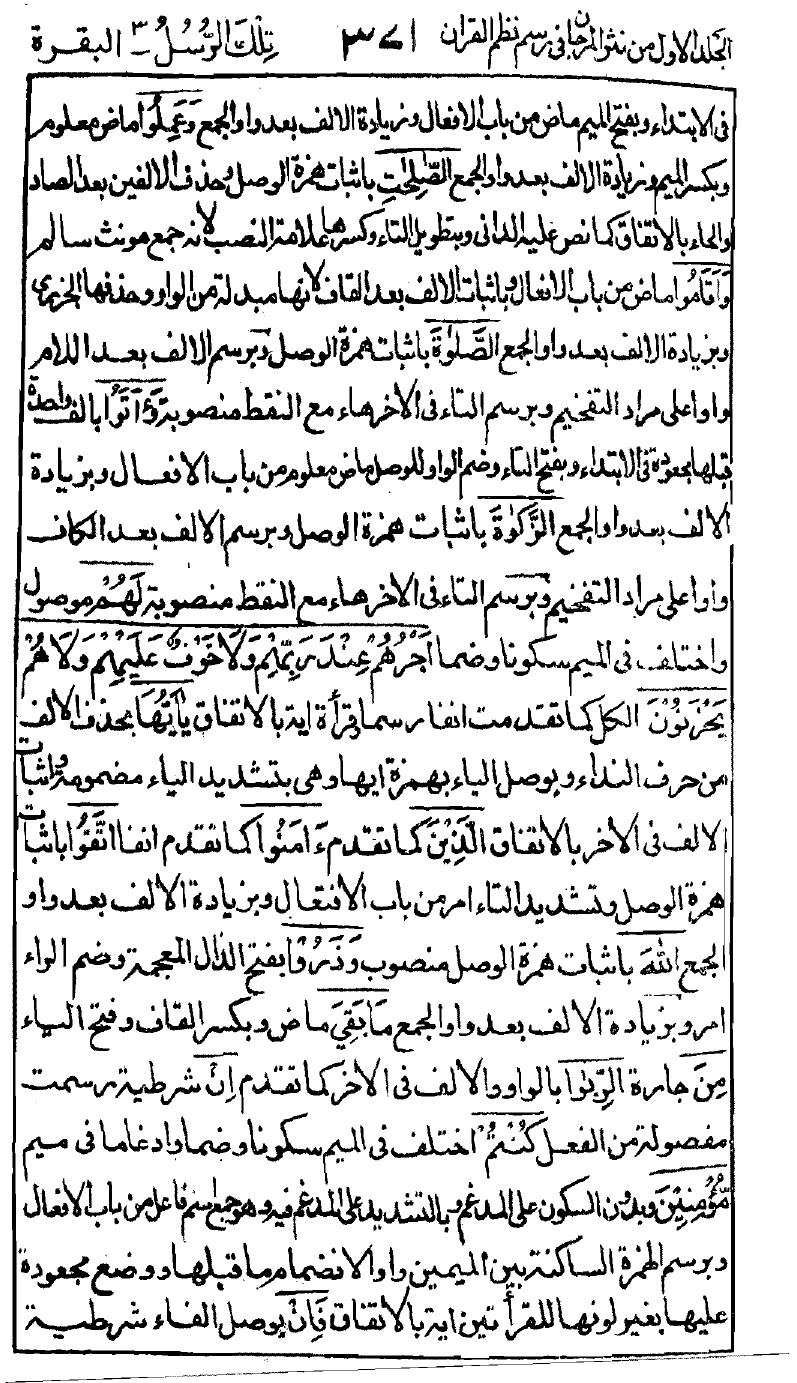 الجلد الاول من نثر المرجان فى رسم نظم القران ٣٧١ تلك الرسل ٣ البقرة
فى الابتداء وبفتح الميم ماض من باب الافعال وزيادة الالف بعد واو الجمع وَعَمِلُوا ماض معلوم
وبكسر الميم وزيادة الالف بعد واو الجمع الصّٰلِحٰتِ باثبات همزة الوصل وحذف الالفين بعد الصاد
والحاء بالاتفاق كما نص عليه الدانى وبتطويل التاء وكسرها علامة النصب لانه جمع مونث سالم
وَاَقَامُوا ماض من باب الافعال وباثبات الالف بعد القاف لانها مبدلة من الواو وحذفها الجزرى
وبزيادة الالف بعد واو الجمع الصَّلٰوةَ باثبات همزة الوصل وبرسم الالف بعد اللام
واوا على مراد التفخيم وبرسم التاء فى الاخر هاء مع النقط منصوبة وَءَاتَوُا بالف واحدة
قبلها مجعودة فى الابتداء وبفتح التاء وضم الواو للوصل ماض معلوم من باب الافعال وبزيادة
الالف بعد واو الجمع الزَّكٰوةَ باثبات همزة الوصل وبرسم الالف بعد الكاف
واوا على مراد التفخيم وبرسم التاء فى الاخر هاء مع النقط منصوبة لَهُمْ موصول
واختلف فى الميم سكونا وضما اَجْرُهُمْ عِنْدَ رَبِّهِمْ وَلَا خَوْفٌ عَلَيْهِمْ وَلَا هُمْ
يَحْزَنُوْنَ الكل كما تقدمت انفا رسما وقرأة اية بالاتفاق يٰاَيُّهَا بحذف الالف
من حرف النداء وبوصل الياء بهمزة ايها وهى بتشديد الياء مضمومة واثبات
الالف فى الاخر بالاتفاق الَّذِيْنَ كما تقدم ءَامَنُوا كما تقدم انفا اتَّقُوا باثبات
همزة الوصل وتشديد التاء امر من باب الافتعال وبزيادة الالف بعد واو
الجمع اللّٰهَ باثبات همزة الوصل منصوب وَذَرُوْا بفتح الذال المعجمة وضم الراء
امر وبزيادة الالف بعد واو الجمع مَا بَقِيَ ماض وبكسر القاف وفتح الياء
مِنَ جارة الرِّبٰوا بالواو والالف فى الاخر كما تقدم اِنْ شرطية رسمت
مفصولة من الفعل كُنْتُمْ اختلف فى الميم سكونا وضما وادغاما فى ميم
مُّؤْمِنِيْنَ وبدون السكون على المدغم وبالتشديد على المدغم فيه وهو جمع اسم فاعل من باب الافعال
وبرسم الهمزة الساكنة بين الميمين واوا لانضمام ما قبلها ووضع مجعودة
عليها بغير لونها للقرأتين اية بالاتفاق فَاِنْ بوصل الفاء شرطية